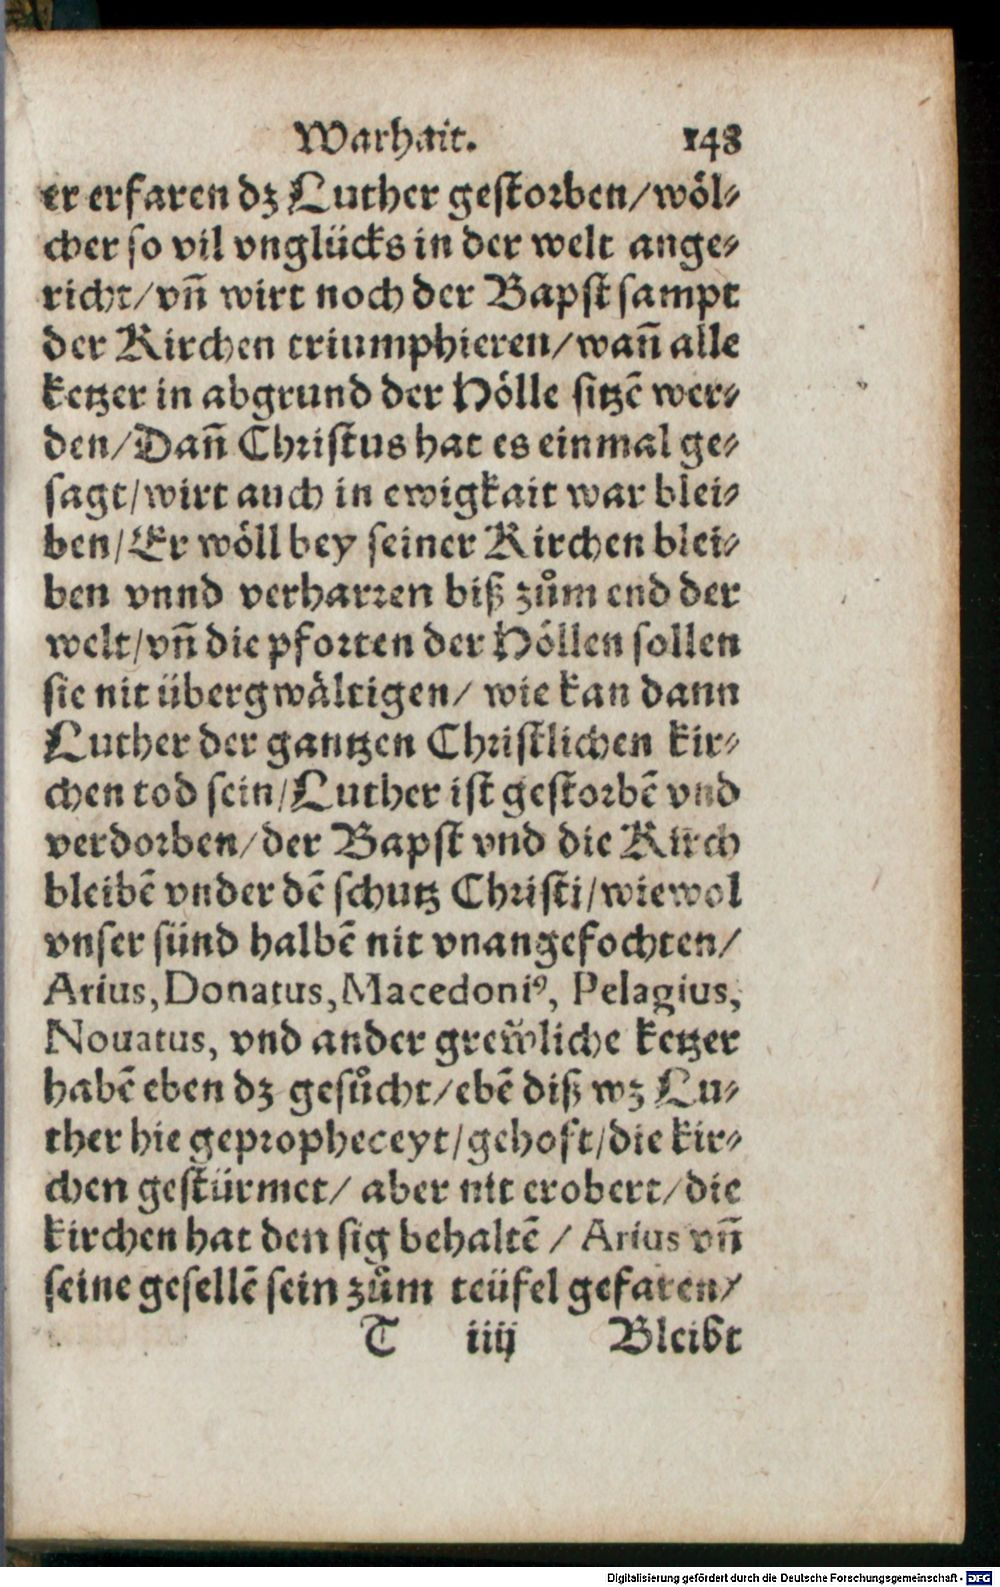 Warhait. 148
er erfaren dz Luther gestorben/wöl⸗
cher so vil vnglücks in der welt ange⸗
richt/vn̄ wirt noch der Bapst sampt
der Kirchen triumphieren/wan̄ alle
ketzer in abgrund der Hölle sitzē wer⸗
den/Dan̄ Christus hat es einmal ge⸗
sagt/wirt auch in ewigkait war blei⸗
ben/Er wöll bey seiner Kirchen blei⸗
ben vnnd verharren biß zům end der
welt/vn̄ die pforten der Höllen sollen
sie nit übergwältigen/ wie kan dann
Luther der gantzen Christlichen kir⸗
chen tod sein/Luther ist gestorbē vnd
verdorben/der Bapst vnd die Kirch
bleibē vnder dē schutz Christi/wiewol
vnser sünd halbē nit vnangefochten/
Arius, Donatus, Macedoniꝰ, Pelagius,
Nouatus, vnd ander grew̆liche ketzer
habē eben dz gesůcht/ebē diß wz Lu⸗
ther hie gepropheceyt/gehoft/die kir⸗
chen gestürmet/ aber nit erobert/die
kirchen hat den sig behaltē / Arius vn̄
seine gesellē sein zům teüfel gefaren/
T iiij Bleibt
Digitalisierung gefördert durch die Deutsche Forschungsgemeinschaft - DFG